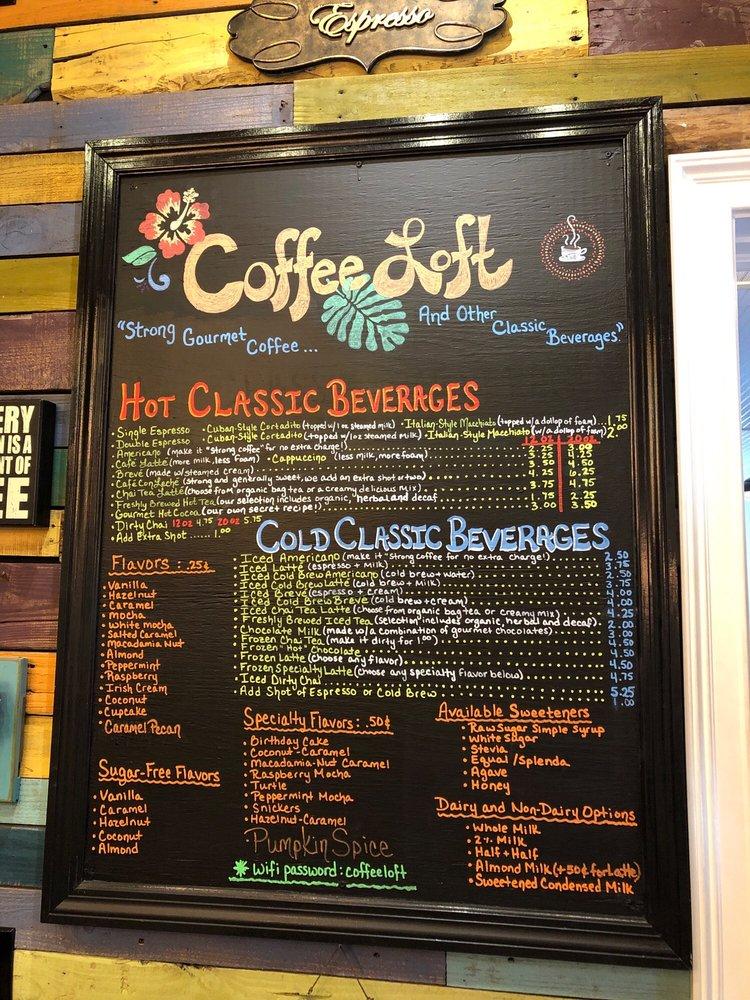 Espresso
Coffee Loft
"Strong Gourmet Coffee ... And Other Classic Beverages."
ERY
N IS A
NT OF
EE
HOT CLASSIC BEVERAGES
· Single Espresso · Cuban-Style Cortadito (topped w/ 1 oz steamed milk) · Italian-Style Macchiato (topped w/a dollop of foam)... 1.75
· Double Espresso · Cuban-Style Cortadito (topped w/ 1oz steamed milk) · Italian-Style Macchiato (w/a dollop of foam) 2.00
12 oz 20 oz
· Americano (make it "strong coffee" for no extra charge!)
· Cafe Latte (more milk, less foam) · Cappuccino (less milk, more foam) 3.25 4.25
· Brevé (made w/ steamed cream) 3.50 4.50
· Café Con Leché (strong and generally sweet, we add an extra shot or two) 4.25
· Chai Tea Latte (choose from organic bag tea or a creamy delicious mix) 3.75 4.75
· Freshly Brewed Hot Tea (our selection includes organic, herbal and decaf 1.75 2.25
· Gourmet Hot Cocoa (our own secret recipe!) 3.00 3.50
· Dirty Chai 12 oz 4.75 20 oz 5.75
· Add Extra Shot ...... 1.00
COLD CLASSIC BEVERAGES
· Iced Americano (make it "strong coffee for no extra charge!) 2.50
· Iced Latte (espresso + milk) 3.75
· Iced Cold Brew Americano (cold brew + water) 2.50
· Iced Cold Brew Latte (cold brew + milk) 3.75
· Iced Brevé (espresso + cream) 4.00
· Iced Cold Brew Brevé (cold brew + cream) 4.00
· Iced Chai Tea Latte (choose from organic bag tea or creamy mix) 4.25
· Freshly Brewed Iced Tea (selection includes organic, herbal and decaf) 2.00
· Chocolate Milk (made w/ a combination of gourmet chocolates) 3.00
· Frozen Chai Tea (make it dirty for 1.00) 4.50
· Frozen "Hot" Chocolate 4.50
· Frozen Latte (choose any flavor) 4.50
· Frozen Specialty Latte (choose any specialty flavor below) 4.75
· Iced Dirty Chai 5.25
· Add Shot of Espresso or Cold Brew 1.00
Flavors : .25¢
· Vanilla
· Hazelnut
· Caramel
· Mocha
· White mocha
· Salted Caramel
· Macadamia Nut
· Almond
· Peppermint
· Raspberry
· Irish Cream
· Coconut
· Cupcake
· Caramel Pecan
Sugar-Free Flavors
· Vanilla
· Caramel
· Hazelnut
· Coconut
· Almond
Specialty Flavors : .50¢
· Birthday Cake
· Coconut-Caramel
· Macadamia-Nut Caramel
· Raspberry Mocha
· Turtle
· Peppermint Mocha
· Snickers
· Hazelnut-Caramel
· Pumpkin Spice
* Wifi password: coffeeloft
Available Sweeteners
· Raw Sugar Simple Syrup
· White Sugar
· Stevia
· Equal /Splenda
· Agave
· Honey
Dairy and Non-Dairy Options
· Whole Milk
· 2% Milk
· Half + Half
· Almond Milk (+50¢ for Latte)
· Sweetened Condensed Milk